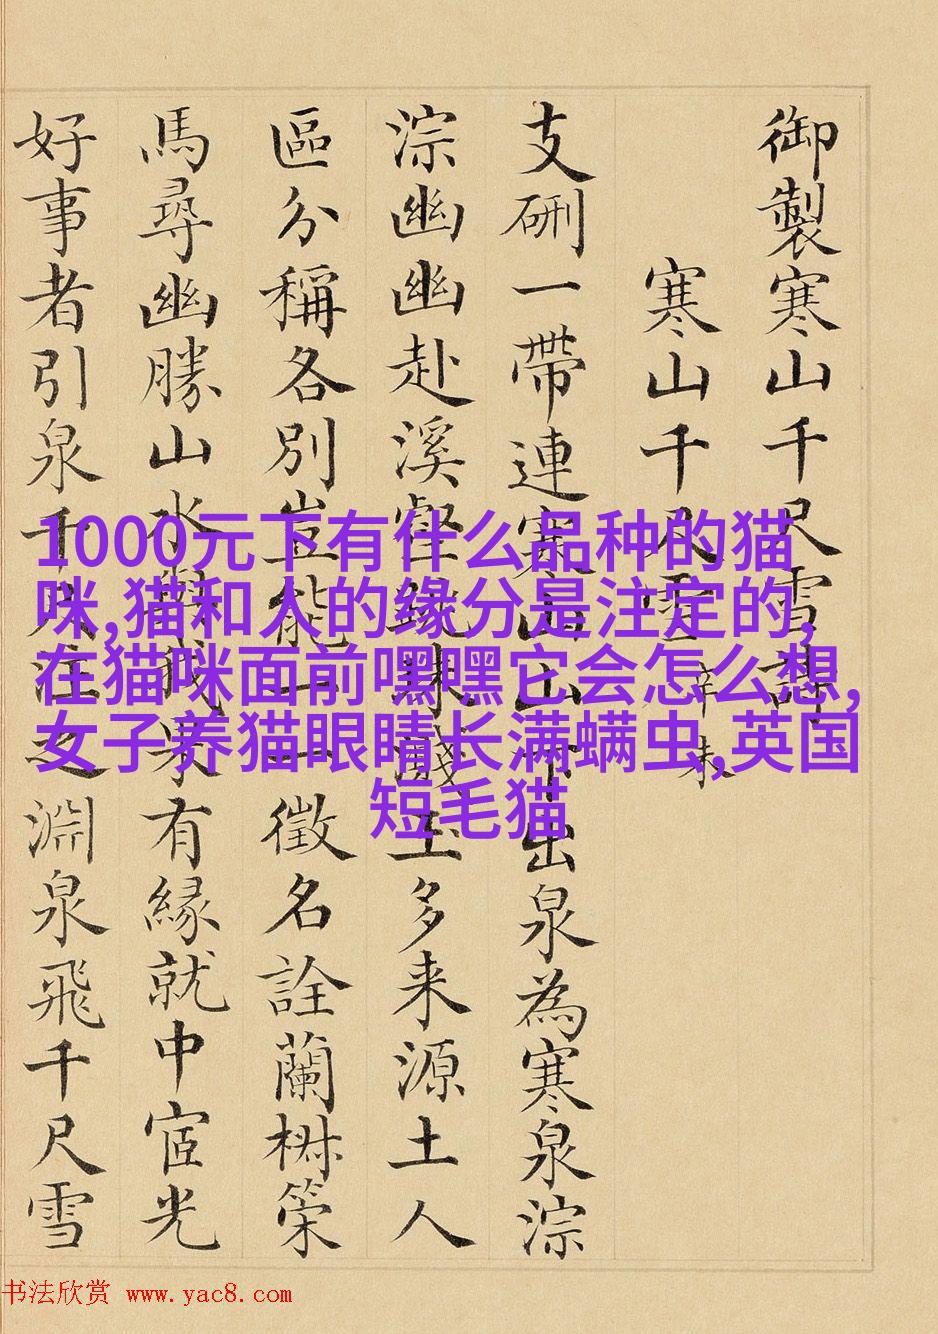 御製寒山千尺雪詩
寒山千尺雪 辛未
支硎一帶連寒山山下出泉為寒泉淙
淙幽幽赴溪壑跳珠濺玉多来源土人
區分稱各別豈能一一徵名詮蘭策
馬尋幽勝山水我有緣就中宦光
好事者引泉千尺注之淵泉飛千尺雪
1000元下有什么品种的猫
咪,猫和人的缘分是注定的,
在猫咪面前嘿嘿它会怎么想,
女子养猫眼睛长满螨虫,英国
短毛猫
书法欣赏 www.yac8.com